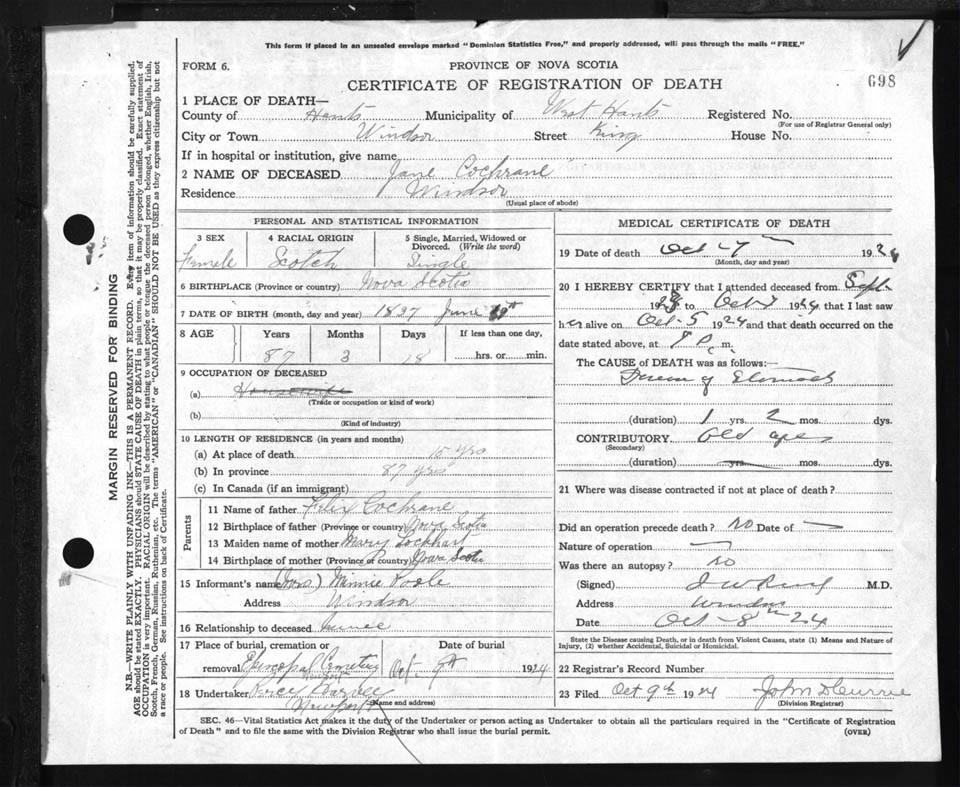 This form if placed in an unsealed envelope marked "Dominion Statistics Free," and properly addressed, will pass through the mails "FREE."
FORM 6. PROVINCE OF NOVA SCOTIA
CERTIFICATE OF REGISTRATION OF DEATH 698
1 PLACE OF DEATH—
County of Hants Municipality of West Hants Registered No.
(For use of Registrar General only)
City or Town Windsor Street King House No.
If in hospital or institution, give name
2 NAME OF DECEASED Jane Cochrane
Residence Windsor
(Usual place of abode)
PERSONAL AND STATISTICAL INFORMATION
3 SEX 4 RACIAL ORIGIN 5 Single, Married, Widowed or Divorced. (Write the word)
Female Scotch Single
6 BIRTHPLACE (Province or country) Nova Scotia
7 DATE OF BIRTH (month, day and year) 1837 June
8 AGE Years Months Days If less than one day,
87 3 18 hrs. or min.
9 OCCUPATION OF DECEASED
(a) Housewife
(Trade or occupation or kind of work)
(b)
(Kind of industry)
10 LENGTH OF RESIDENCE (in years and months)
(a) At place of death 15 yrs
(b) In province 87 yrs
(c) In Canada (if an immigrant)
Parents
11 Name of father Felix Cochrane
12 Birthplace of father (Province or country) Nova Scotia
13 Maiden name of mother Mary Lockhart
14 Birthplace of mother (Province or country) Nova Scotia
15 Informant's name (Mrs) Minnie Poole
Address Windsor
16 Relationship to deceased niece
17 Place of burial, cremation or removal Episcopal Cemetery Newport
Date of burial Oct. 9th 1924
18 Undertaker Percy
Newport (Name and address)
MEDICAL CERTIFICATE OF DEATH
19 Date of death Oct – 7 192
(Month, day and year)
20 I HEREBY CERTIFY that I attended deceased from Sept
192 to Oct 1924 that I last saw
her alive on Oct-5 1924 and that death occurred on the
date stated above, at P. m.
The CAUSE of DEATH was as follows:—
of Stomach
(duration) 1 yrs. 2 mos. dys.
CONTRIBUTORY Old age
(Secondary)
(duration) yrs. mos. dys.
21 Where was disease contracted if not at place of death?
Did an operation precede death? no Date of —
Nature of operation —
Was there an autopsy? no
(Signed) M.D.
Address Windsor
Date Oct – 8th 24
State the Disease causing Death, or in death from Violent Causes, state (1) Means and Nature of Injury, (2) whether Accidental, Suicidal or Homicidal.
22 Registrar's Record Number
23 Filed Oct 9th 1924 John
(Division Registrar)
SEC. 46—Vital Statistics Act makes it the duty of the Undertaker or person acting as Undertaker to obtain all the particulars required in the "Certificate of Registration
of Death" and to file the same with the Division Registrar who shall issue the burial permit. (OVER)
MARGIN RESERVED FOR BINDING
N.B.—WRITE PLAINLY WITH UNFADING INK—THIS IS A PERMANENT RECORD. Every item of information should be carefully supplied.
AGE should be stated EXACTLY. PHYSICIANS should STATE CAUSE OF DEATH in plain terms, so that it may be properly classified. Exact statement of
OCCUPATION is very important. RACIAL ORIGIN will be described by stating to what people or tongue the deceased person belonged, whether English, Irish,
Scotch, French, German, Russian, Ruthenian, etc. The terms "AMERICAN" or "CANADIAN" SHOULD NOT BE USED as they express citizenship but not
a race or people. See instructions on back of Certificate.